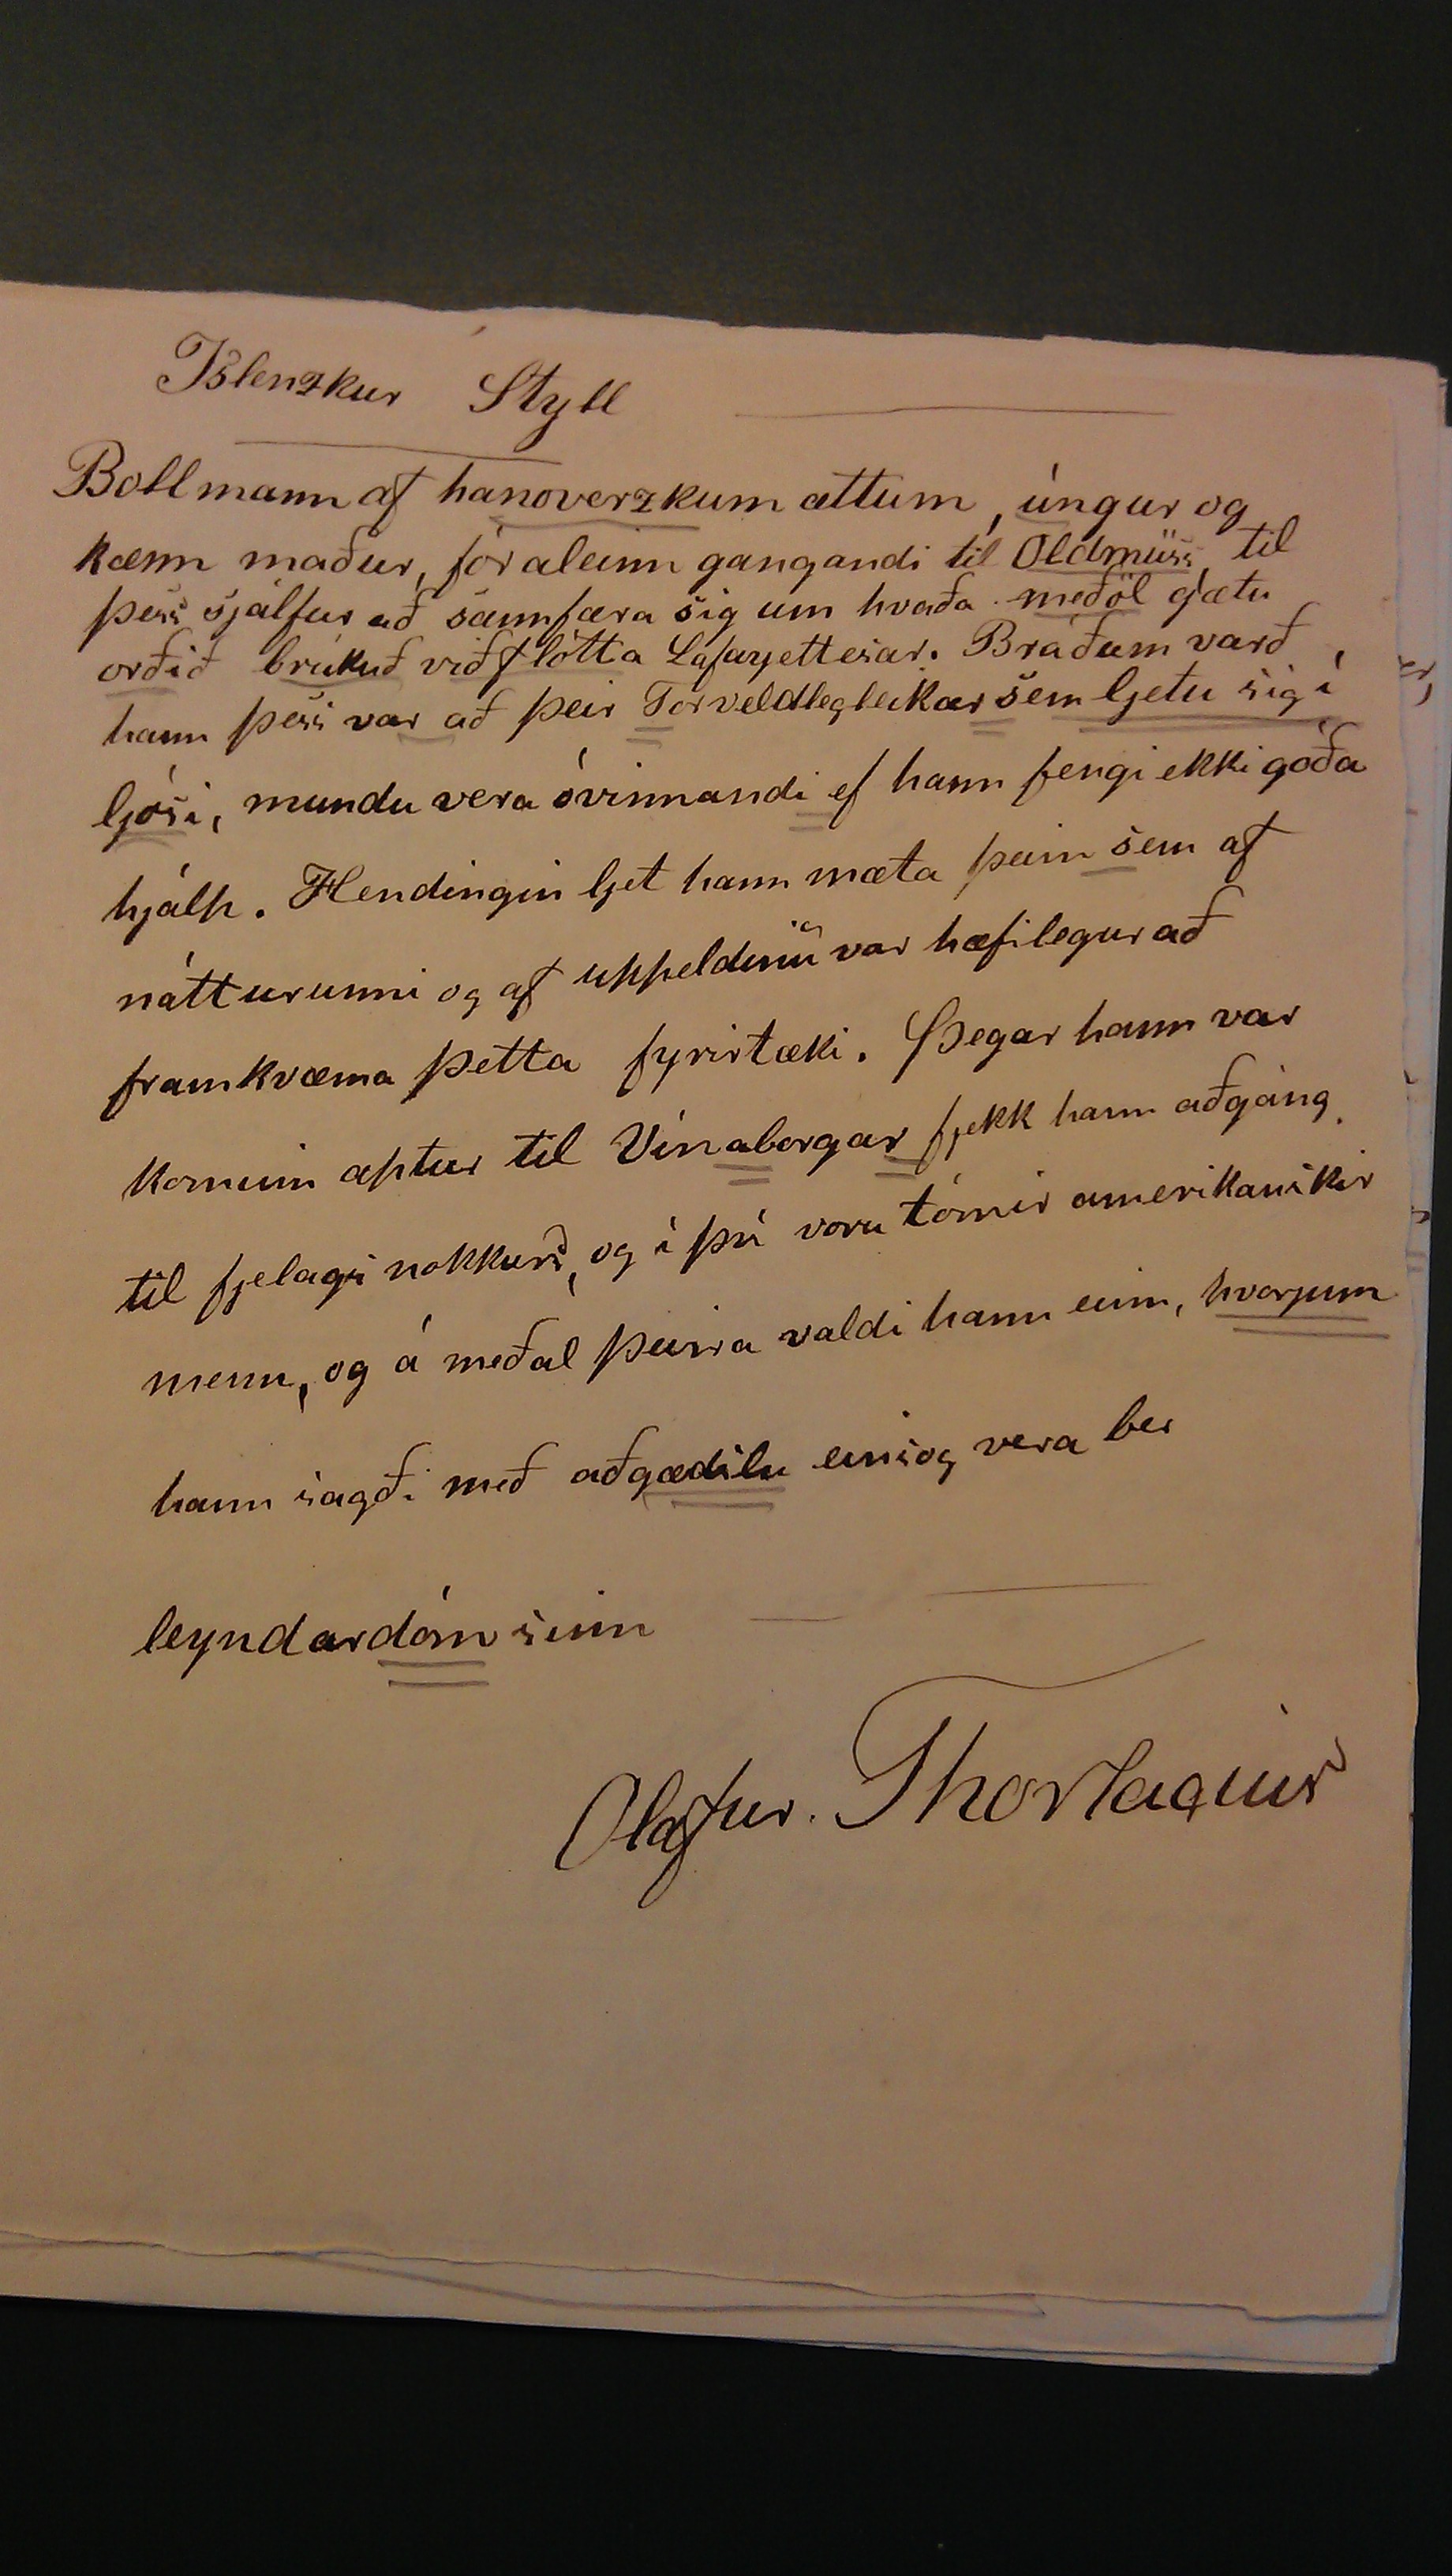 Islenzkur Stýll
Bollmann af hanoverzkum ættum, úngur og
kænn maður, fór aleinn gangandi til Oldmüss, til
þess sjálfur að sannfæra sig um hvaða meðöl gætu
orðið brúkuð við flótta Lafayettesar. Bráðum varð
hann þess var að þeir Torveldlegleikar sem ljetu sig í
ljósi, mundu vera óvinnandi ef hann fengi ekki góða
hjálp. Hendingin ljet hann mæta þeim sem af
nátturunni og af uppeldinu var hæfilegur að
framkvæma þetta fyrirtæki. Þegar hann var
kominn aptur til Vínaborgar fjekk hann aðgáng
til fjelags nokkurs, og í því voru tómir amerikanskir
menn, og á meðal þeirra valdi hann einn, hvorjum
hann sagði með aðgædslu einsog vera ber
leyndardóm sinn
Olafur. Thorlacius